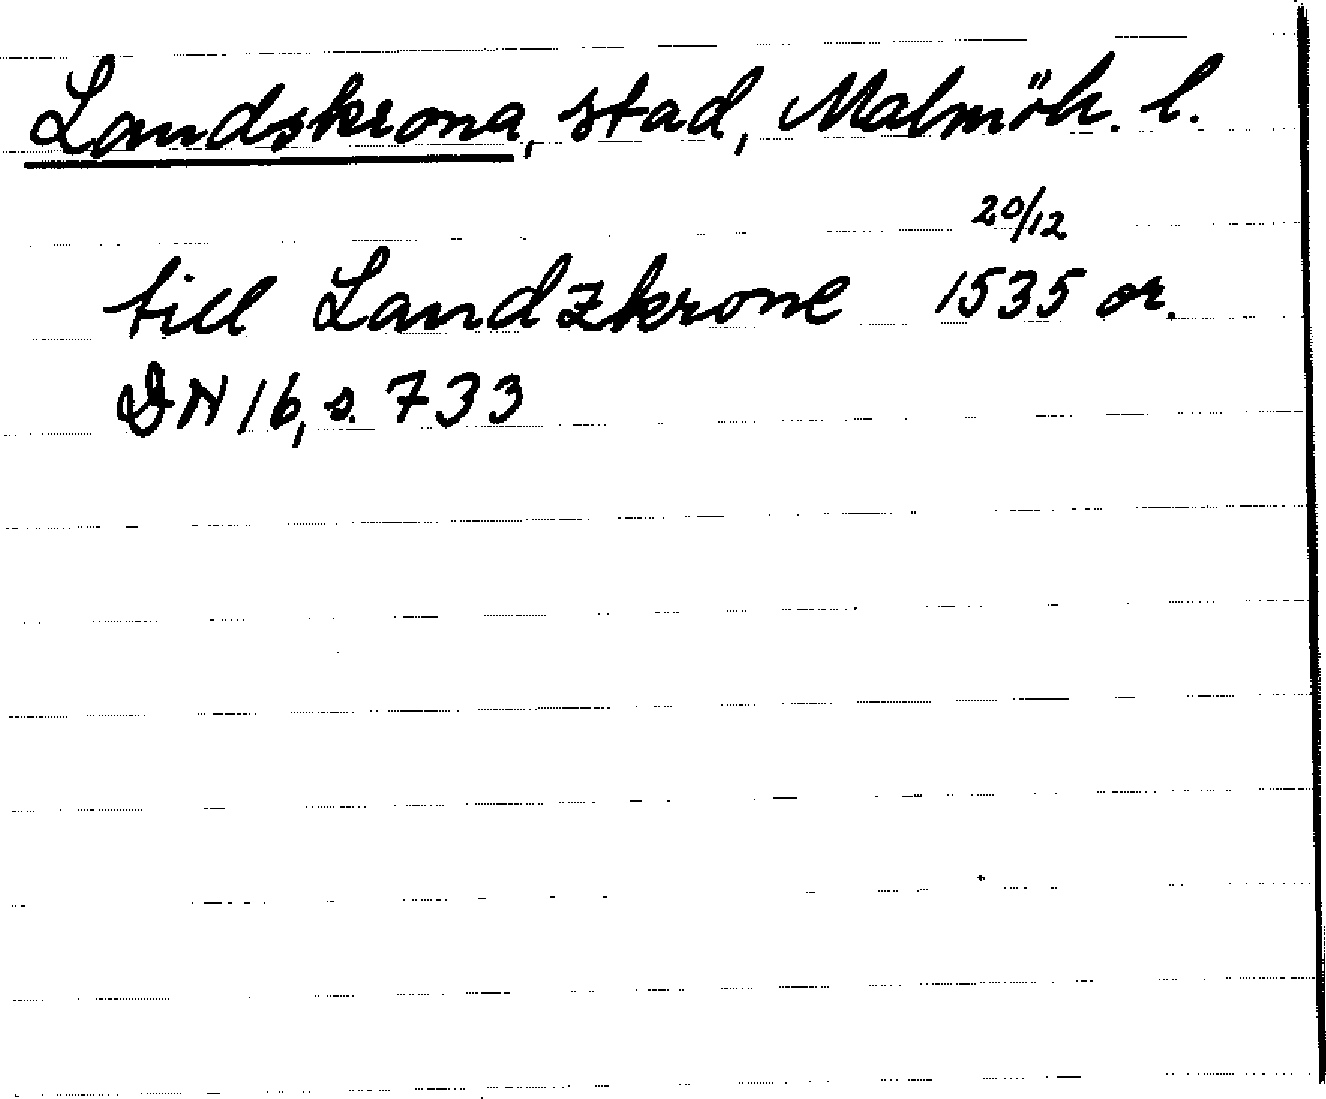 Landskrona, stad, Malmöh. l.
till Landzkrone 20/12 1535 or.
DN 16, s. 733